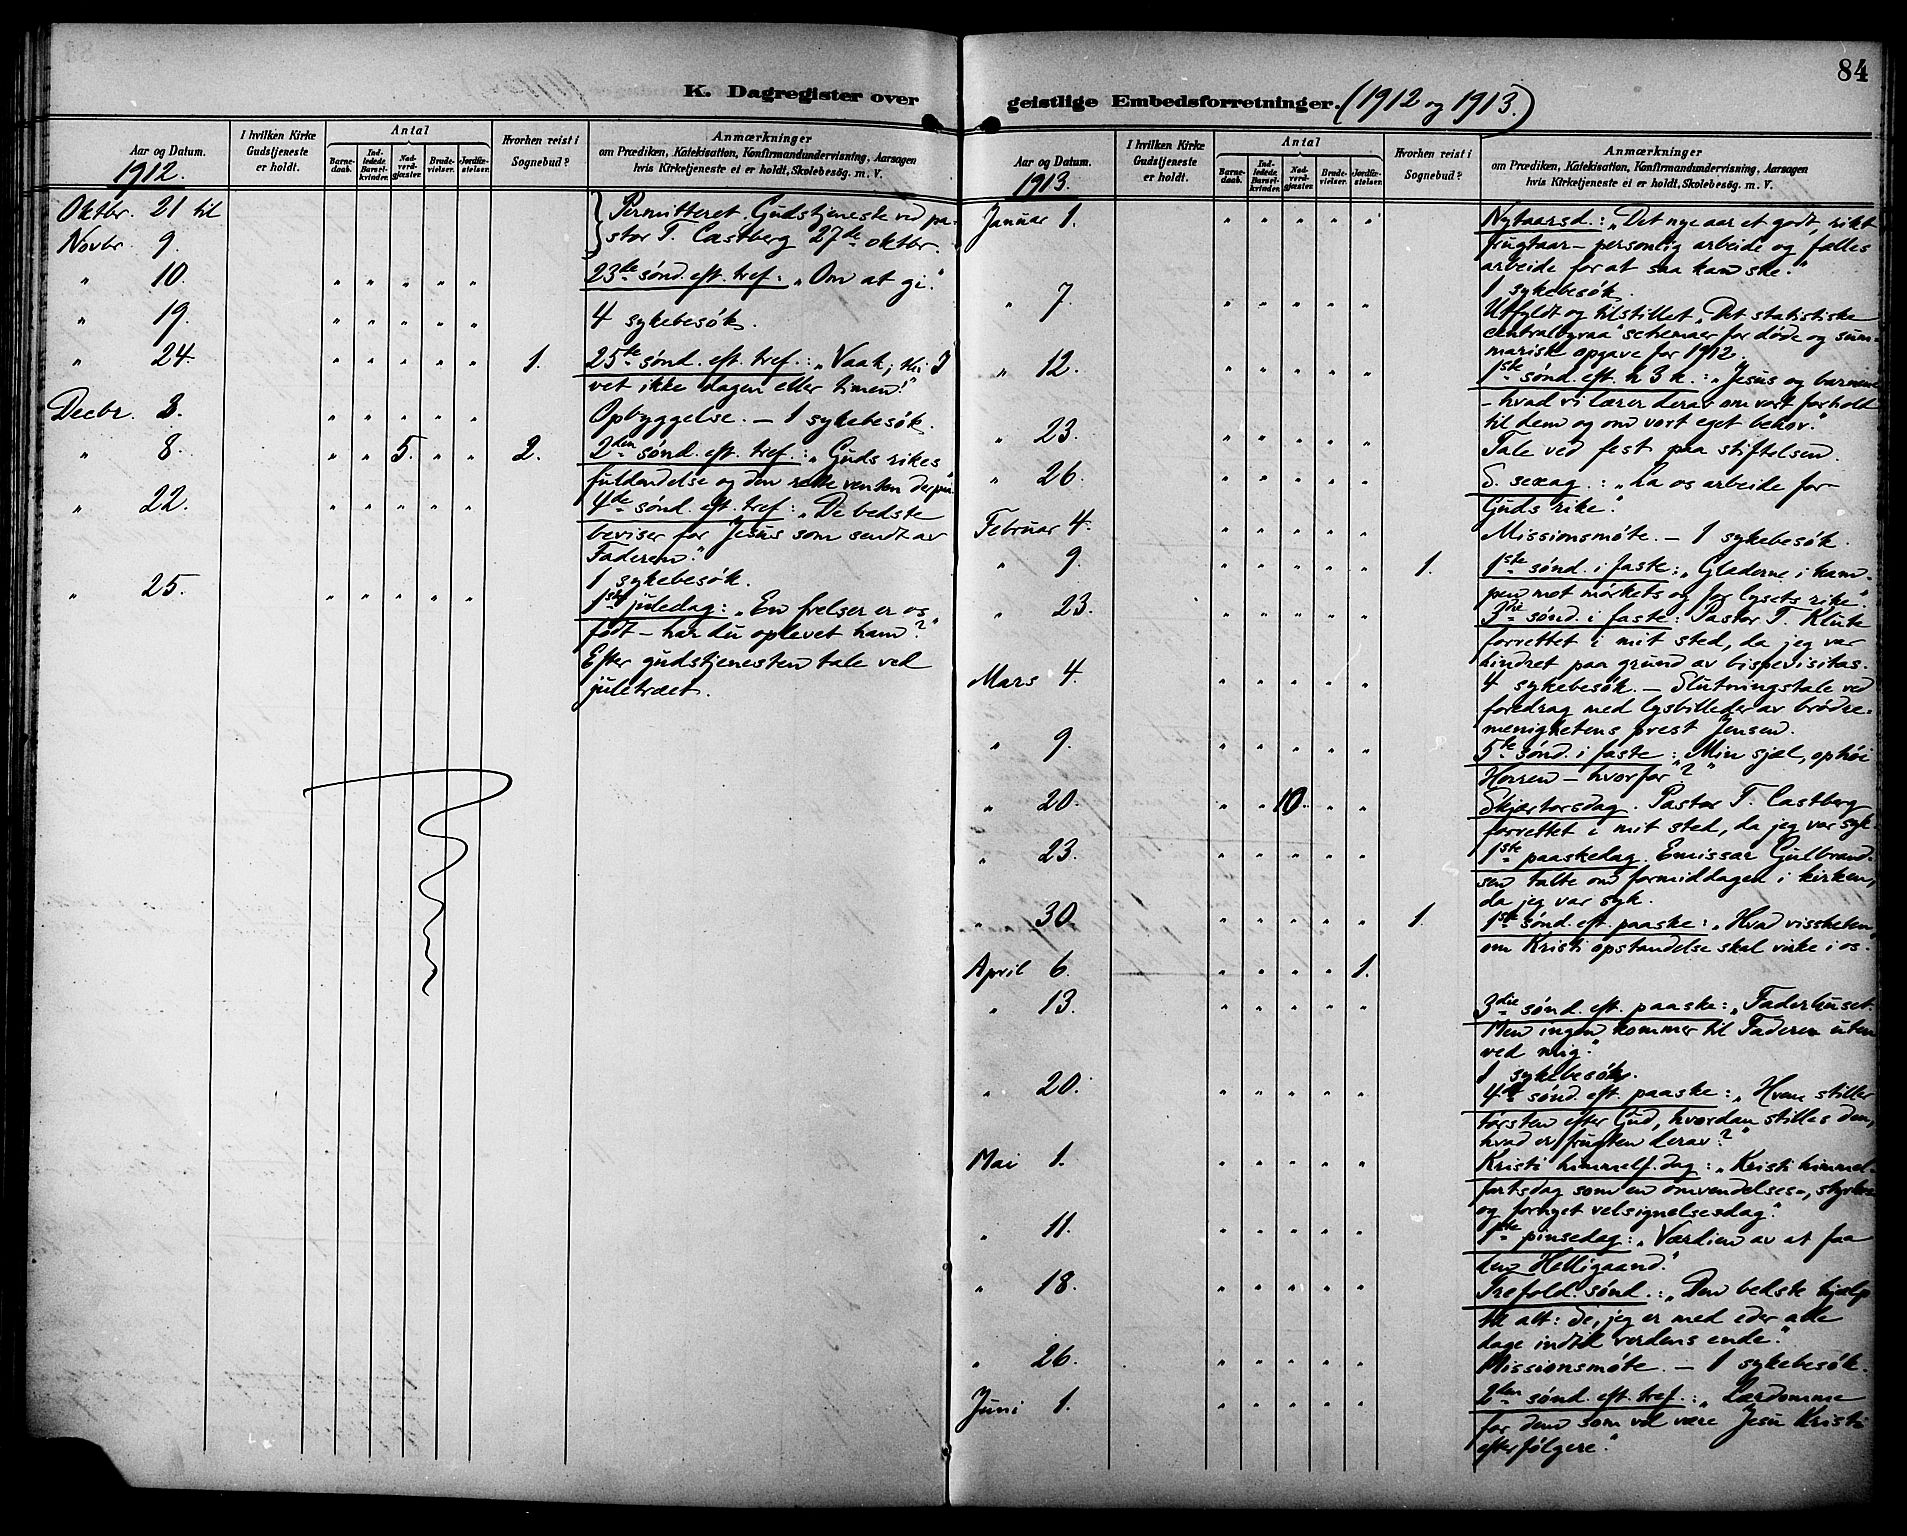 84
K. Dagregister over geistlige Embedsforretninger. (1912 og 1913.)
Aar og Datum.
1912.
I hvilken Kirke Gudstjeneste er holdt.
Antal
Barnedaab.
Indledede Barselkvinder.
Nadverdgjæster.
Brudevielser.
Jordfæstelser.
Hvorhen reist i Sognebud?
Anmærkninger
om Prædiken, Katekisation, Konfirmandundervisning, Aarsagen
hvis Kirketjeneste ei er holdt, Skolebesøg. m. V.
Oktbr. 21 til
Novbr. 9.
Permitteret. Gudstjeneste ved pa-
stor T. Castberg 27de oktbr.
" 10. " " " " " 23de sønd. eft. tref.: „Om at gi."
" 19. " " " " " 4 sykebesøk.
" 24. " " " " " 1. 25te sønd. eft. tref.: „Vaak, thi I
vet ikke dagen eller timen!"
Decbr. 3. " " " " " Opbyggelse. – 1 sykebesøk.
" 8. " " 5. " " 2. 2den sønd. eft. tref.: „Guds rikes
fuldendelse og den rette venten derpaa."
" 22. " " " " " 4de sønd. eft. tref: „De bedste
beviser for Jesus som sendt av
Faderen."
1 sykebesøk.
" 25. " " " " " 1ste juledag: „En frelser er os
født – har du oplevet ham?"
Efter gudstjenesten tale ved
juletræet.
Aar og Datum.
1913.
I hvilken Kirke Gudstjeneste er holdt.
Antal
Barnedaab.
Indledede Barselkvinder.
Nadverdgjæster.
Brudevielser.
Jordfæstelser.
Hvorhen reist i Sognebud?
Anmærkninger
om Prædiken, Katekisation, Konfirmandundervisning, Aarsagen
hvis Kirketjeneste ei er holdt, Skolebesøg. m. V.
Januar 1. " " " " " Nytaarsd.: „Det nye aar et godt, rikt
frugtaar – personlig arbeide og fælles
arbeide for at saa kan ske."
1 sykebesøk.
" 7. " " " " " Utfyldt og tilstillet „Det statistiske
centralbyraa" schemaer for døde og sum-
marisk opgave for 1912.
" 12. " " " " " 1ste sønd. eft. h 3 k.: „Jesus og barnene
– hvad vi lærer derav om vort forhold
til dem og om vort eget behov."
" 23. " " " " " Tale ved fest paa stiftelsen.
" 26. " " " " " S. sexag.: „La os arbeide for
Guds rike."
Februar 4. " " " " " Missionsmøte. – 1 sykebesøk.
" 9. " " " " " 1. 1ste sønd. i faste: „Glæderne i kam-
pen mot mørkets og for lysets rike."
" 23. " " " " " 3die sønd. i faste: Pastor T. Klute
forrettet i mit sted, da jeg var
hindret paa grund av bispevisitas.
Mars 4. " " " " " 4 sykebesøk. – Slutningstale ved
foredrag med lysbilleder av brødre-
menighetens prest Jensen.
" 9. " " " " " 5te sønd. i faste: „Min sjæl, ophøi
Herren – hvorfor?"
" 20. " " 10. " " Skjærtorsdag. Pastor T. Castberg
forrettet i mit sted, da jeg var syk.
" 23. " " " " " 1ste paaskedag. Emissær Gulbrand-
sen talte om formiddagen i kirken,
da jeg var syk.
" 30. " " " " " 1. 1ste sønd. eft. paaske: „Hvad vissheten
om Kristi opstandelse skal virke i os."
April 6. " " " " 1.
" 13. " " " " " 3die sønd. eft. paaske: „Faderhuset.
Men ingen kommer til Faderen uten
ved mig."
1 sykebesøk.
" 20. " " " " " 4de sønd. eft. paaske: „Hvem stiller
tørsten efter Gud, hvordan stilles den,
hvad er frugten derav?"
Mai 1. " " " " " Kristi himmelf.dag: „Kristi himmel-
fartsdag som en omvendelses-, styrkes-
og fornyet velsignelsesdag."
" 11. " " " " " 1ste pinsedag: „Værdien av at faa
den Helligaand."
" 18. " " " " " Trefold. sønd.: „Den bedste hjælp
til alt: Se, jeg er med eder alle
dage indtil verdens ende."
" 26. " " " " " Missionsmøte. – 1 sykebesøk.
Juni 1. " " " " " 2den sønd. eft. tref.: „Lærdomme
for dem som vil være Jesu Kristi
efterfølgere."